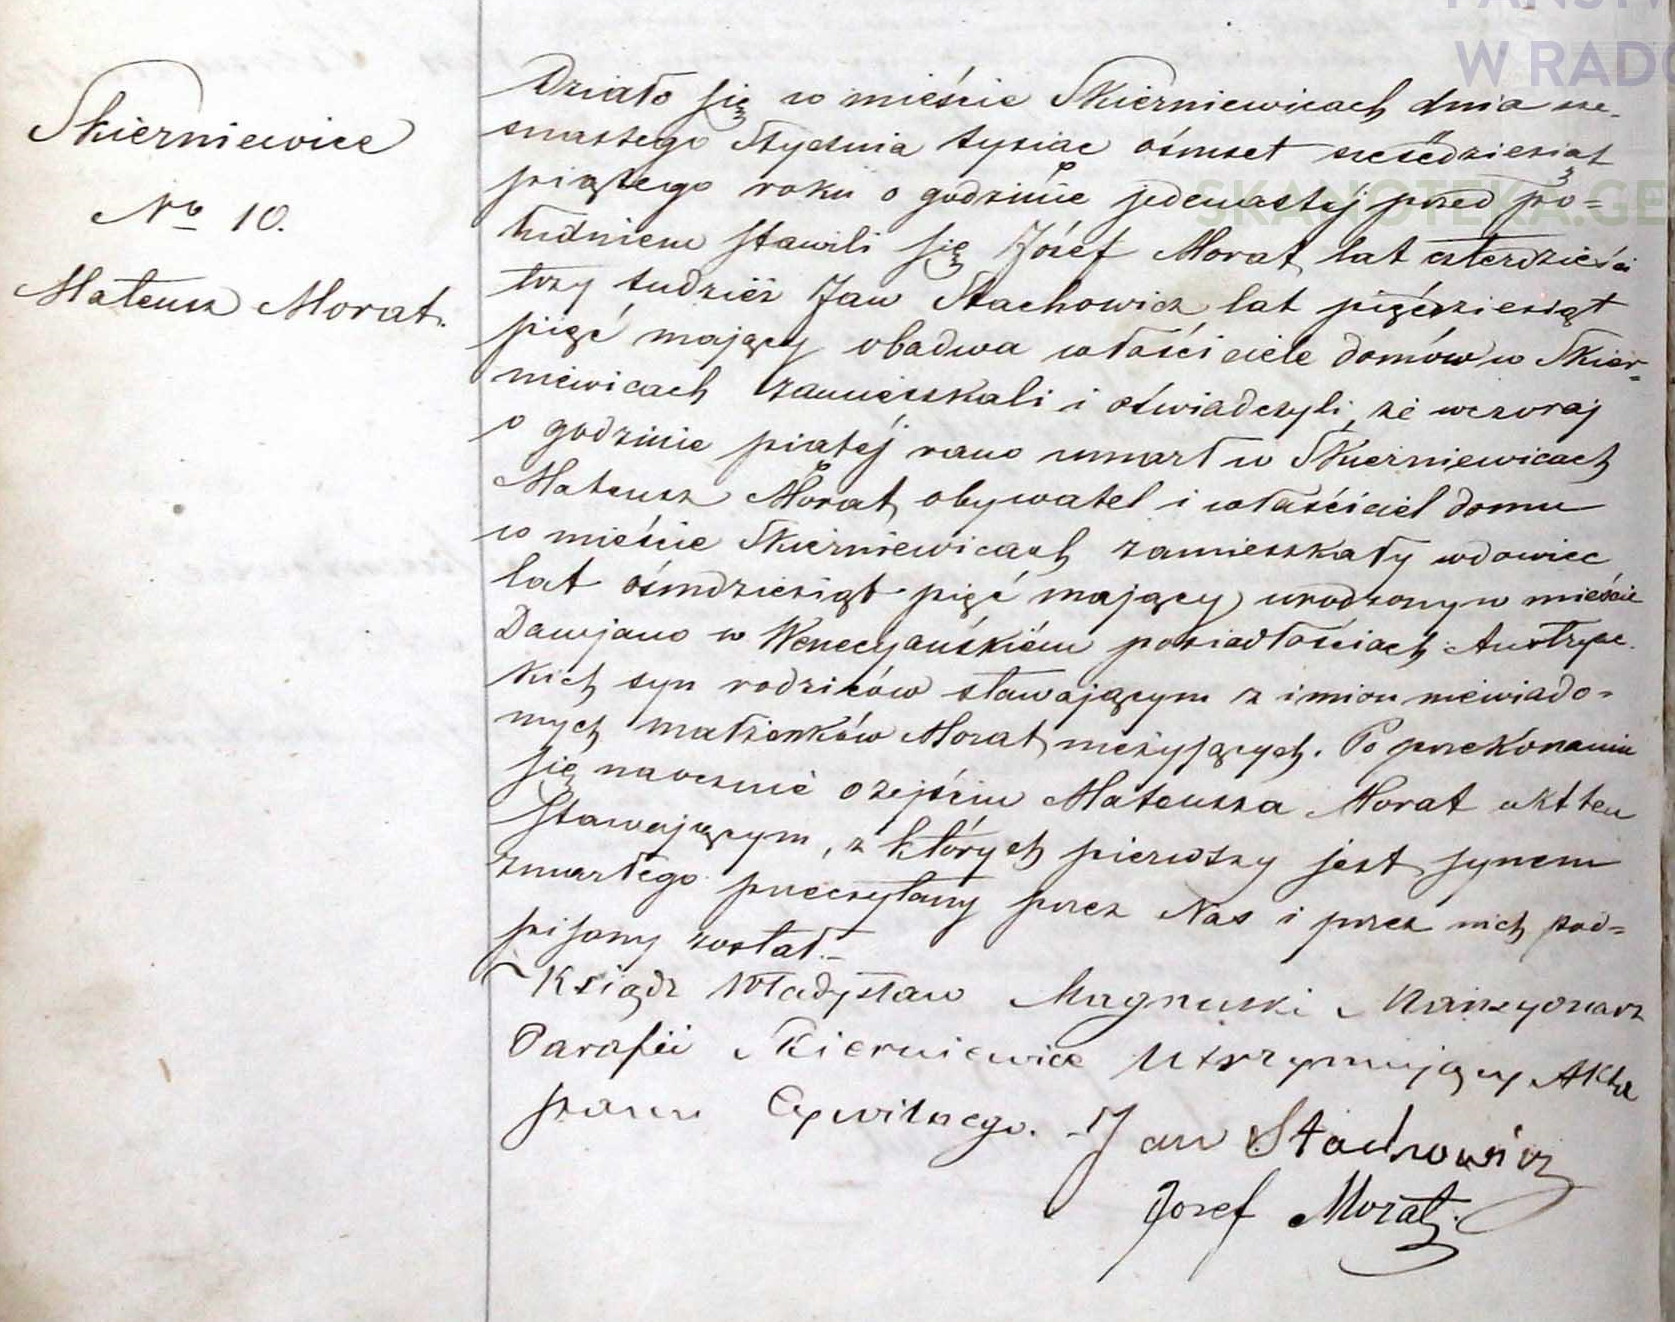 PAŃSTW
W RADO
SKANOTEKA.GE
Skierniewice
No 10.
Mateusz Morat.
Działo się w mieście Skierniewicach dnia sze-
snastego Stycznia tysiąc ośmset sześćdziesiąt
piątego roku o godzinie jedenastéj przed po=
łudniem stawili się Józef Morat lat czterdzieści
trzy tudzież Jan Stachowicz lat pięćdziesiąt
pięć mający obadwa właściciele domów w Skier=
niewicach zamieszkali i oświadczyli, że wczoraj
o godzinie piątéj rano umarł w Skierniewicach
Mateusz Morat, obywatel i właściciel domu
w mieście Skierniewicach zamieszkały wdowiec
lat ośmdziesiąt pięć mający urodzony w mieście
Damjano w Wenecyańskiém posiadłościach Austryac-
kich syn rodziców stawającym z imion niewiado=
mych małżonków Morat nieżyjących. Po przekonaniu
się naocznie o zejściu Mateusza Morat akt ten
stawającym, z których pierwszy jest synem
zmarłego przeczytany przez Nas i przez nich pod=
pisany został.-
Ksiądz Władysław Magnuski Mansyonarz
Parafii Skierniewice Utrzymujący Akta
stanu Cywilnego. Jan Stachowicz
Jozef Morat.